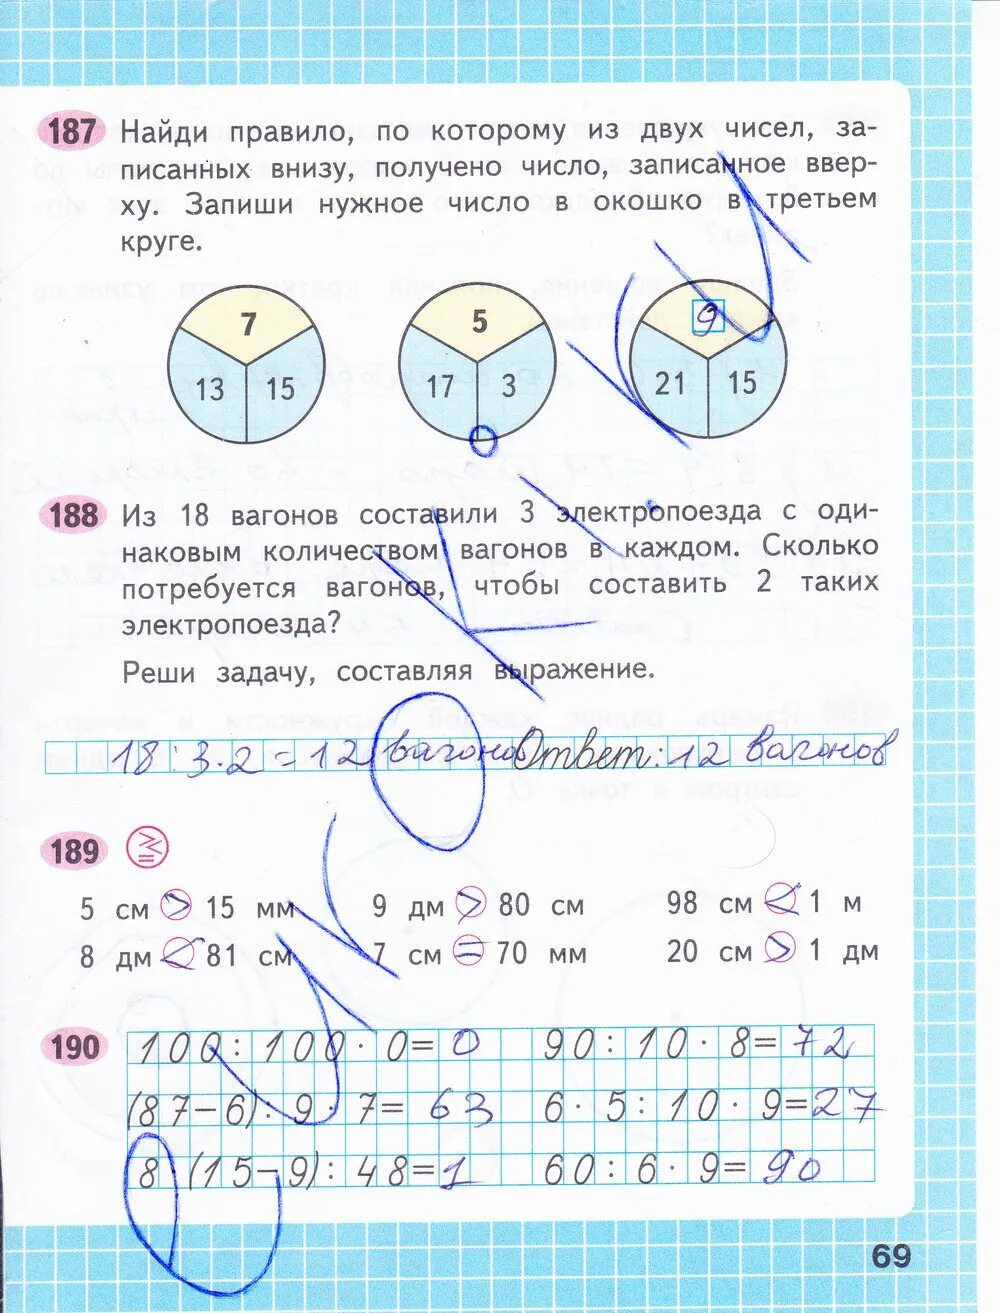 187 Найди правило, по которому из двух чисел, за-
писанных внизу, получено число, записанное ввер-
ху. Запиши нужное число в окошко в третьем
круге.
7 5 9
13 15 17 3 21 15
188 Из 18 вагонов составили 3 электропоезда с оди-
наковым количеством вагонов в каждом. Сколько
потребуется вагонов, чтобы составить 2 таких
электропоезда?
Реши задачу, составляя выражение.
18 : 3 · 2 = 12 вагонов Ответ: 12 вагонов
189
5 см > 15 мм 9 дм > 80 см 98 см < 1 м
8 дм < 81 см 7 см = 70 мм 20 см > 1 дм
190 100 : 100 · 0 = 0 90 : 10 · 8 = 72
(87 − 6) : 9 · 7 = 63 6 · 5 : 10 · 9 = 27
8 · (15 − 9) : 48 = 1 60 : 6 · 9 = 90
69